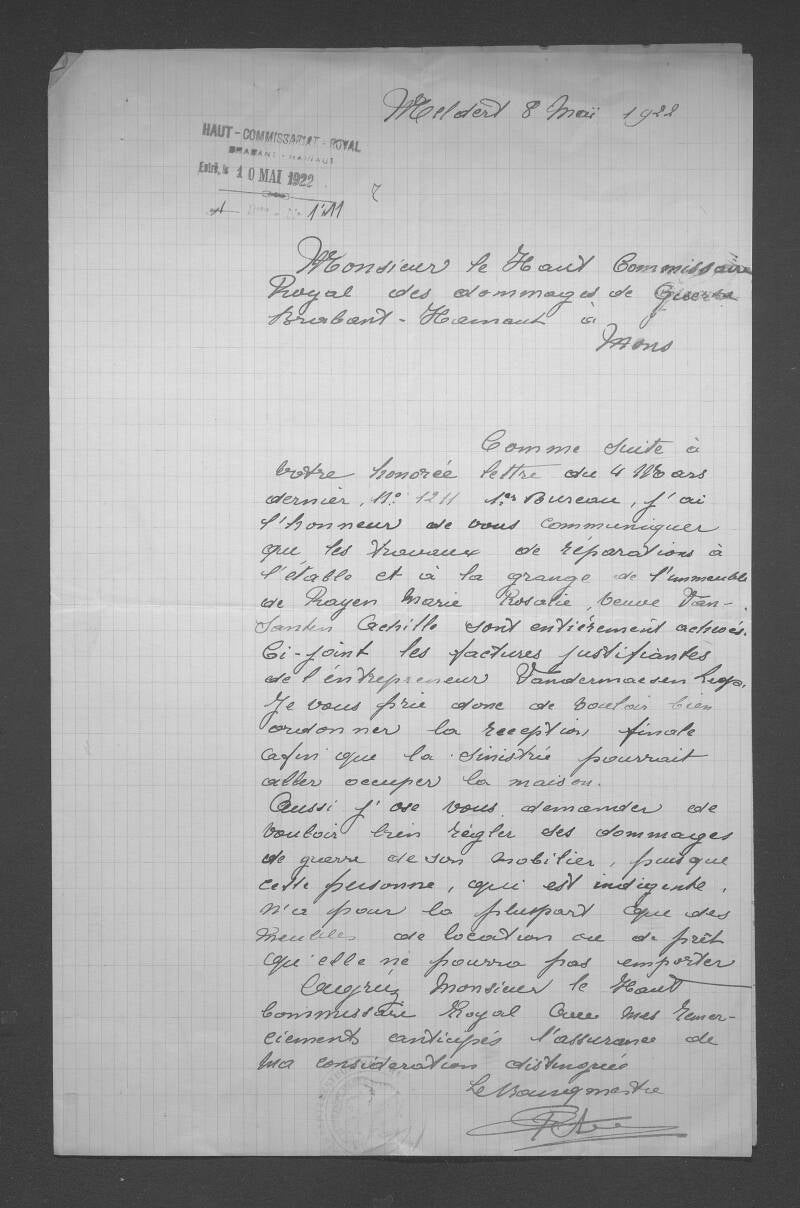 Meldert 8 Maï 1922
HAUT-COMMISSARIAT-ROYAL
BRABANT-HAINAUT
Entré, le 10 MAI 1922
1211
Monsieur le Haut Commissaire
Royal des dommages de Guerre
Brabant-Hainaut à
Mons
Comme suite à
votre honorée lettre du 4 Mars
dernier, No 1211 1er Bureau, j'ai
l'honneur de vous communiquer
que les travaux de réparations à
l'étable et à la grange de l'immeuble
de Rayen Marie Rosalie, veuve Van-
Santen Cachille sont entièrement achevés.
Ci-joint les factures justifiantes
de l'éntrepreneur Vandermaesen
Je vous prie donc de vouloir bien
ordonner la reception finale
afin que la sinistrée pourrait
aller occuper la maison.
Aussi j'ose vous demander de
vouloir bien régler des dommages
de guerre de son mobilier, puisque
cette personne, qui est indigente,
n'a pour la pluspart que des
meubles de location ou de prêt
qu'elle ne pourra pas emporter
Augréez Monsieur le Haut
Commissaire Royal avec mes remer-
ciements anticipés l'assurance de
ma consideration distinguée
Le Bourgmestre